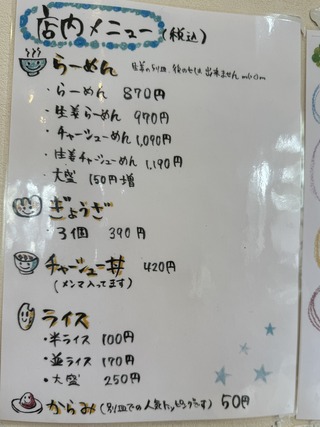 店内メニュー(税込)
らーめん 生姜の別皿、後のせは出来ません m(_ _)m
・らーめん 870円
・生姜らーめん 970円
・チャーシューめん 1,090円
・生姜チャーシューめん 1,190円
・大盛 150円増
ぎょうざ
・3個 390円
チャーシュー丼 420円
(メンマ入ってます)
ライス
・半ライス 100円
・並ライス 170円
・大盛 250円
からみ(別皿での人気トッピングです) 50円